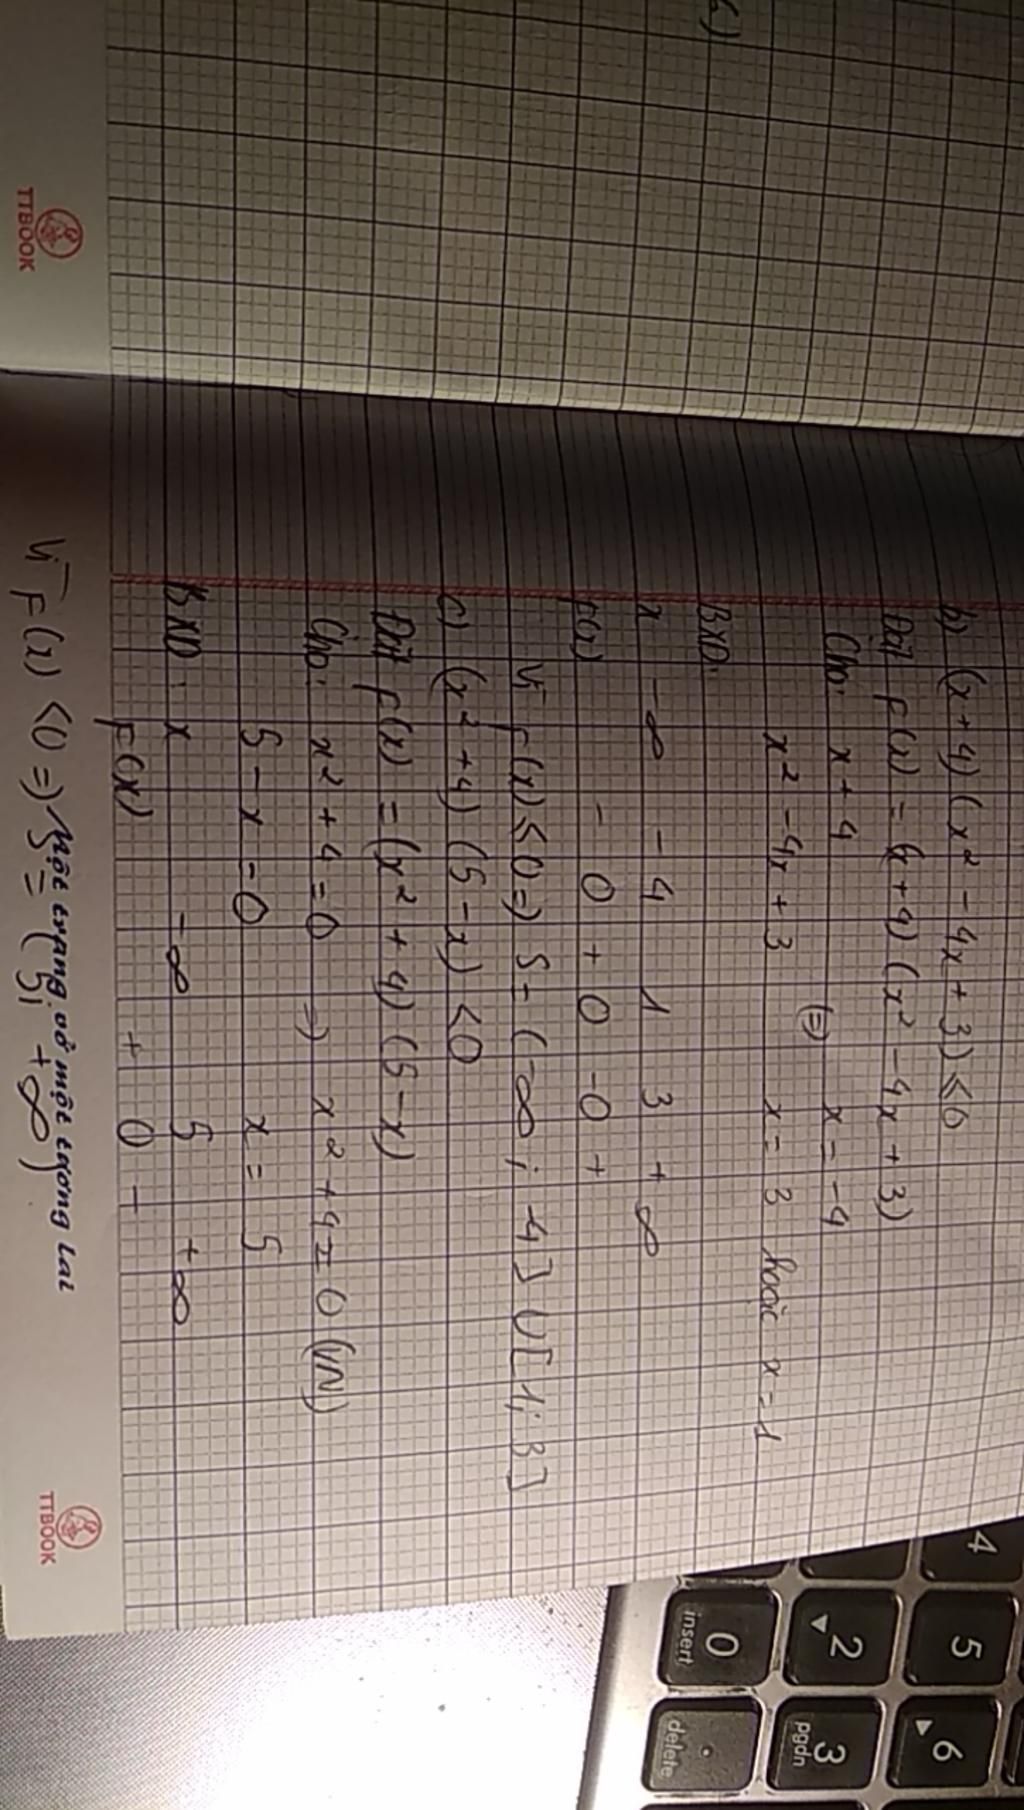 b) (x+4)(x² - 4x + 3) ≤ 0
Đặt F(x) = (x+4)(x² - 4x + 3)
Cho: x + 4 (=) x = -4
x² - 4x + 3 x = 3 hoặc x = 1
BXD:
x -∞ -4 1 3 +∞
F(x) - 0 + 0 - 0 +
Vì F(x) ≤ 0 => S = (-∞; -4] ∪ [1; 3]
c) (x² + 4)(5 - x) < 0
Đặt F(x) = (x² + 4)(5 - x)
Cho: x² + 4 = 0 => x² + 4 = 0 (VN)
5 - x = 0 x = 5
BXD: x -∞ 5 +∞
F(x) + 0 -
Một trang vở một tương lai
Vì F(x) < 0 => S = (5; +∞)
TTBOOK
TTBOOK
4 5 6
2 3 pgdn
0 insert . delete